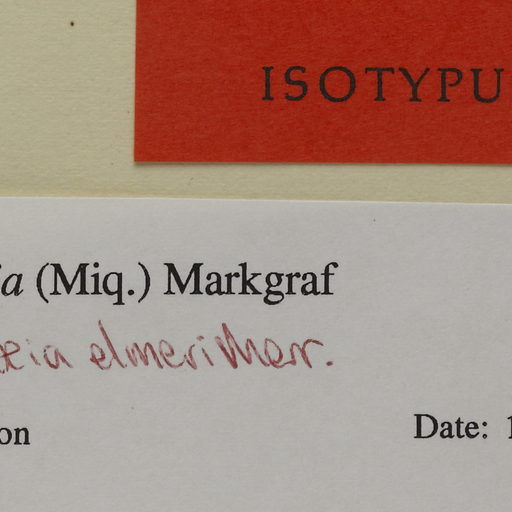 ISOTYPU
a (Miq.) Markgraf
eia elmeri Merr.
on
Date: 1